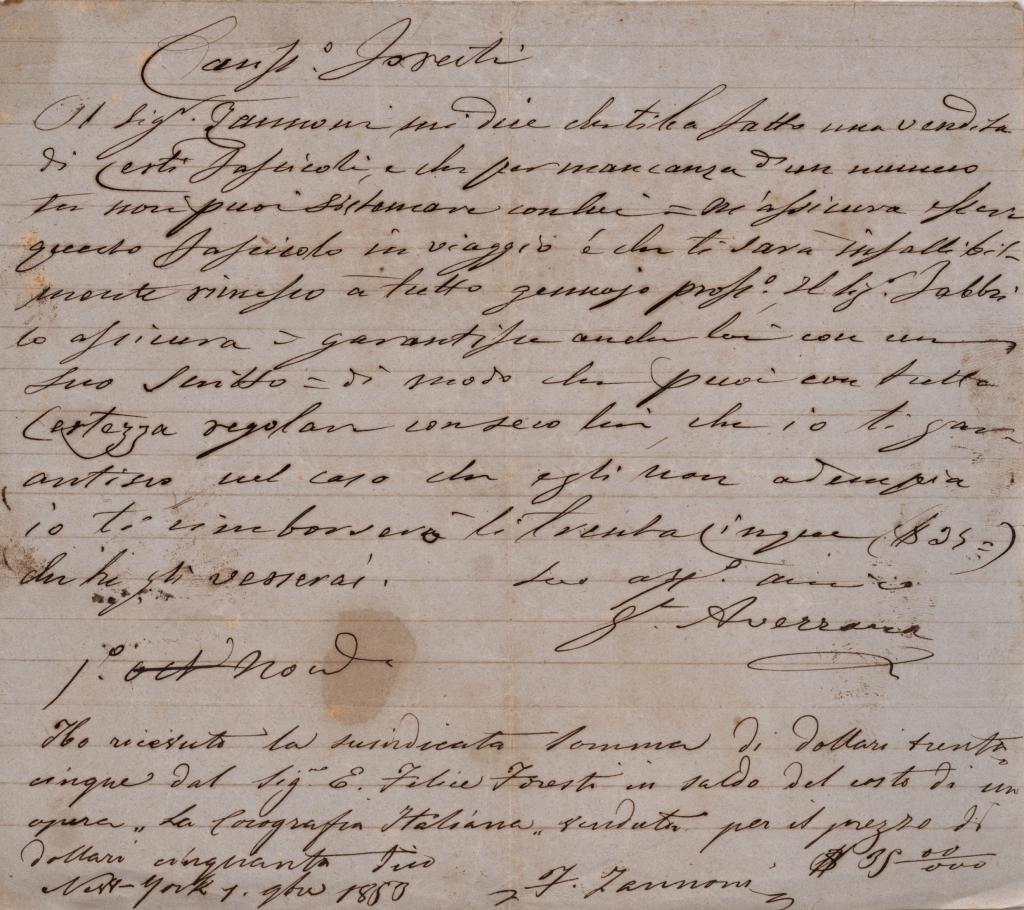 Cariss.º Foresti
Il Sigr. Zannoni mi dice che ti ha fatto una vendita
di certi fascicoli, e che per mancanza d'un numero
tu non puoi sistemare con lui = M'assicura esser
questo fascicolo in viaggio é che ti sarà infallibil-
mente rimesso a tutto gennajo pross.º Il Sigr. Fabbri
lo assicura = garantisce anche lui con un
suo scritto = di modo che puoi con tutta
certezza regolare con seco lui, che io ti gar-
antisco nel caso che egli non adempia
io ti rimborserò li trenta cinque ($ 35=)
che tu gli verserai. Suo aff.º amico
G. Avezzana
1.º oct Nov
Ho ricevuto la suindicata somma di dollari trenta
cinque dal Sigr E. Felice Foresti in saldo del costo di un
opera „La Corografia Italiana„ venduta per il prezzo di
dollari cinquanta dico $ 35 00/000
New-York 1. 9bre 1850 F. Zannoni